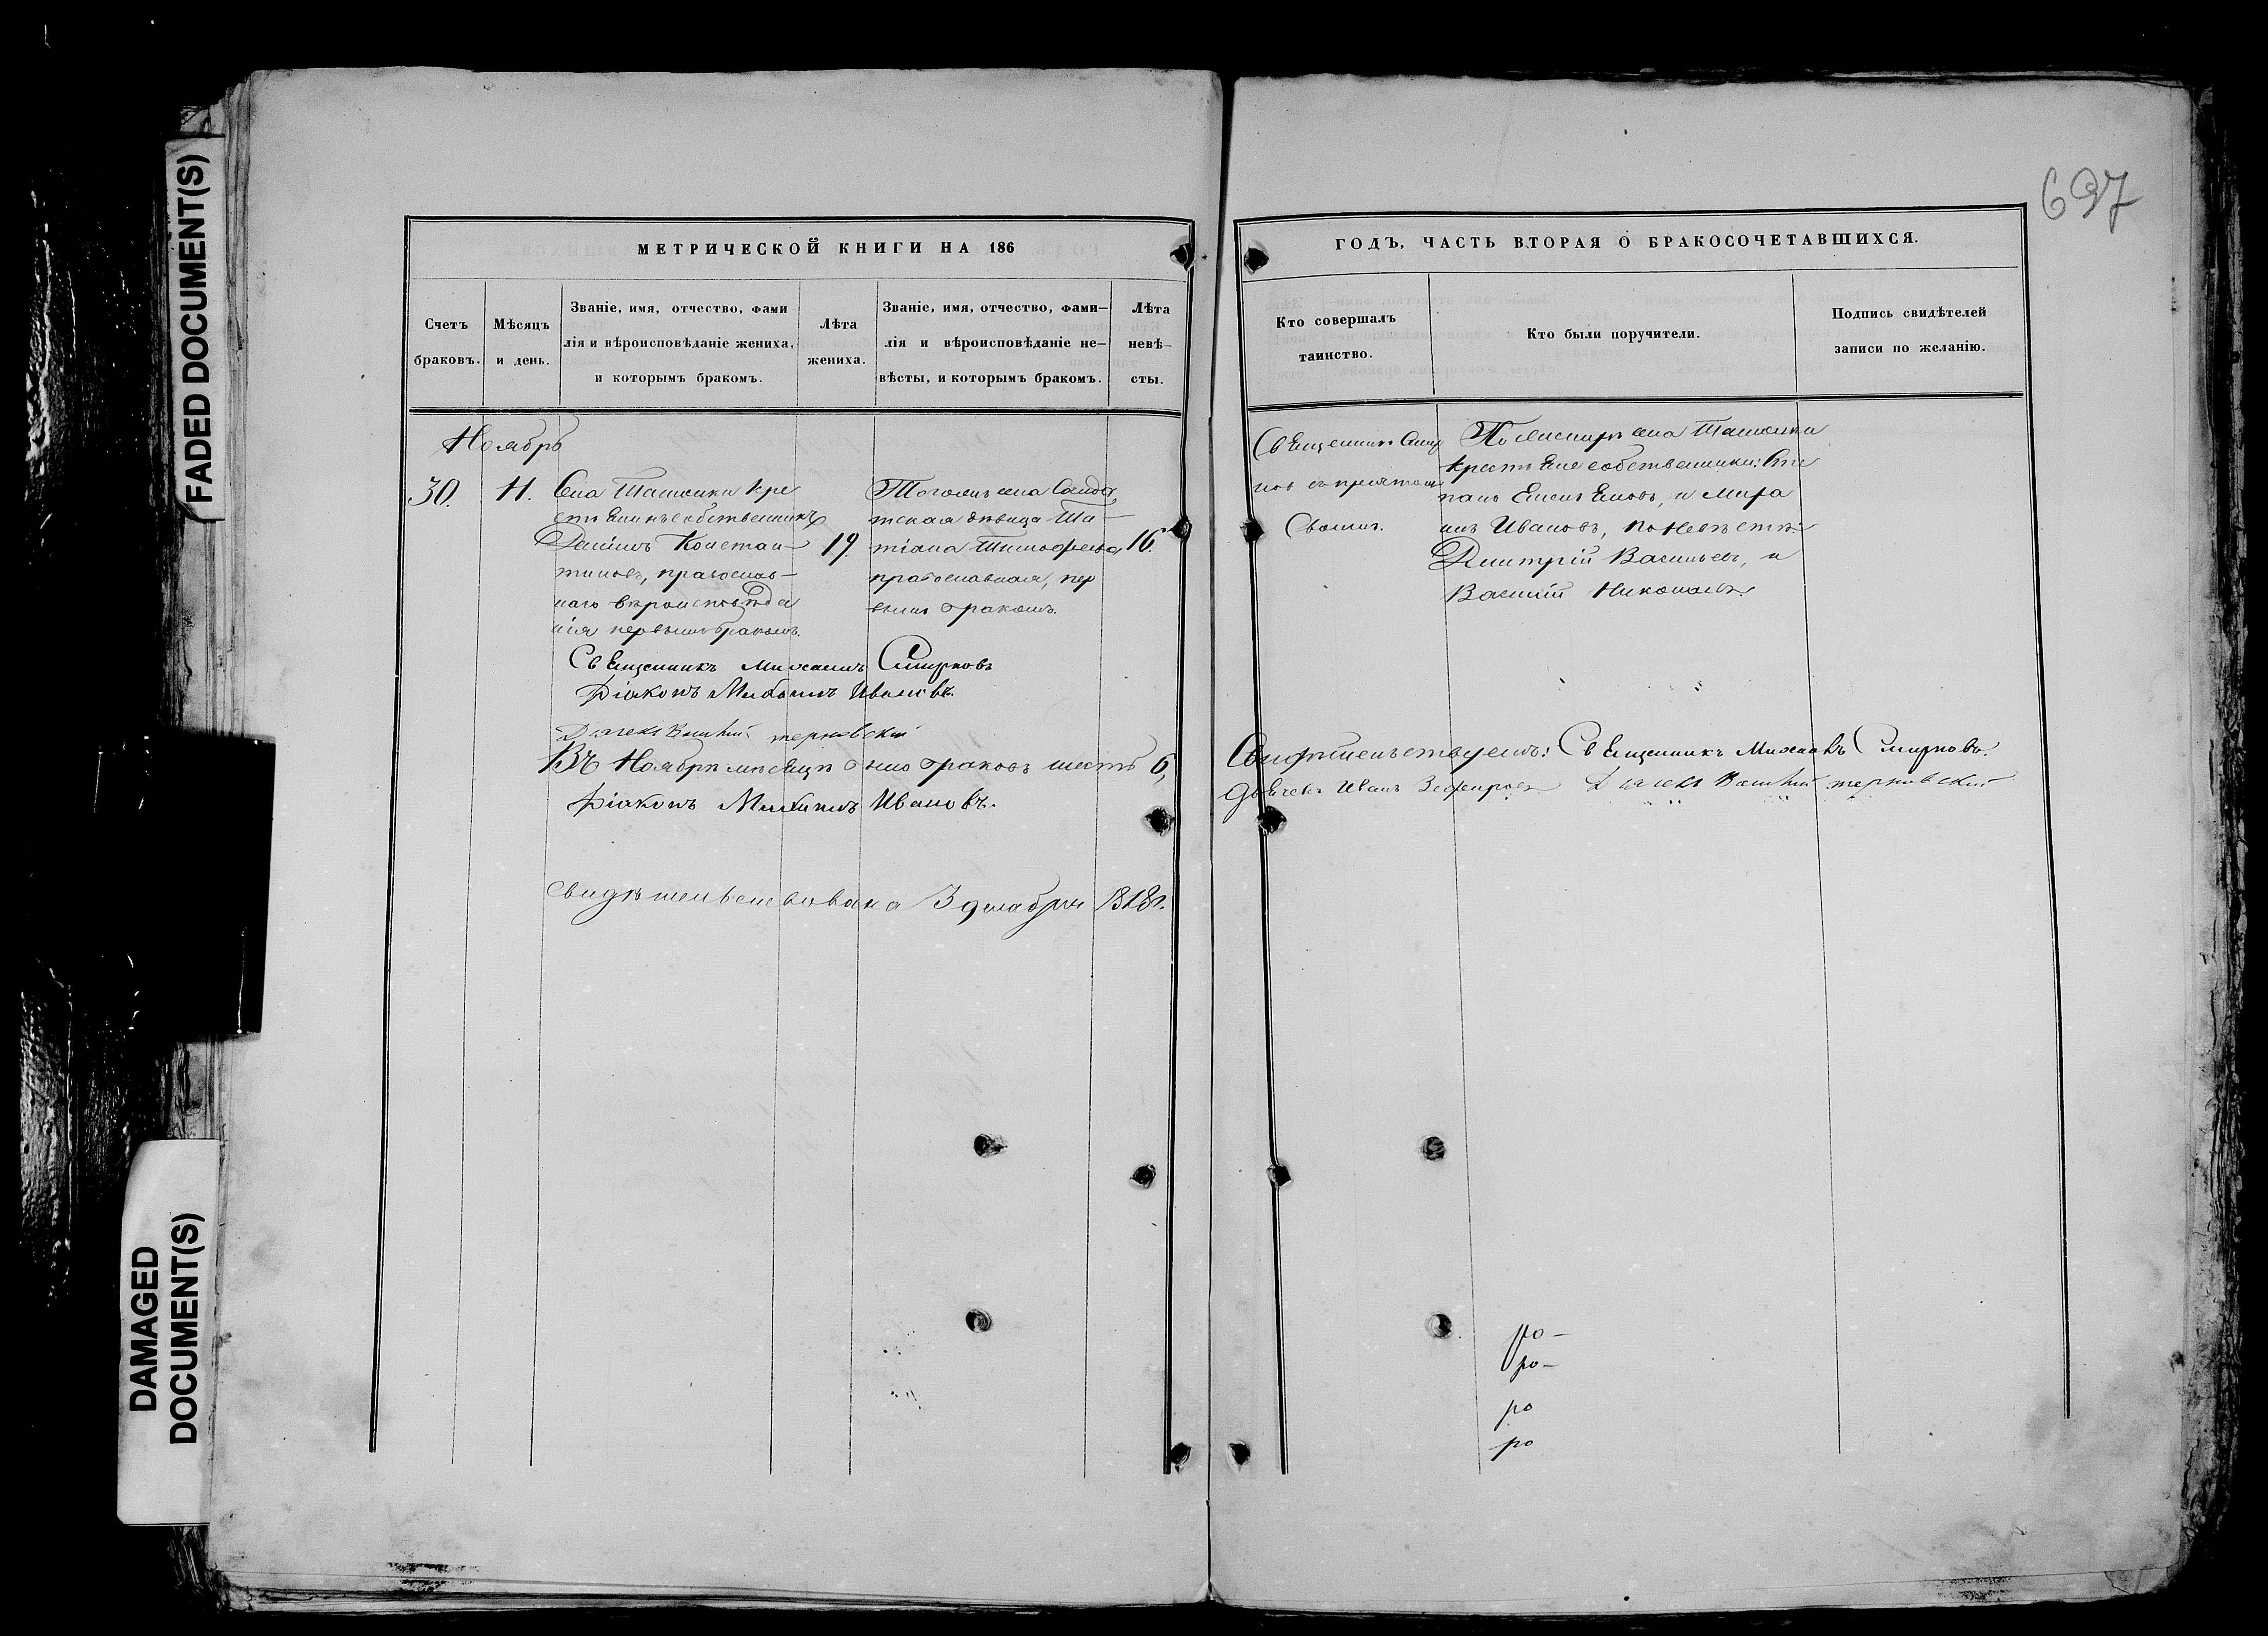 FADED DOCUMENT(S)
DAMAGED
DOCUMENT(S)
697
МЕТРИЧЕСКОЙ КНИГИ НА 186
Счетъ
браковъ.
Мѣсяцъ
и день.
Званіе, имя, отчество, фами
лія и вѣроисповѣданіе жениха,
и которымъ бракомъ.
Лѣта
жениха.
Званіе, имя, отчество, фами—
лія и вѣроисповѣданіе не—
вѣсты, и которымъ бракомъ.
Лѣта
невѣ-
сты.
Ноябрь
30.
Села Ташелки кре
стьянинъ собственникъ
Константи-
новъ, православ-
наго вѣроисповѣда
нія первымъ бракомъ.
19.
Тогожъ села Солда
тская дѣвица Та-
тіана Тимофеева
православная, пер
вымъ бракомъ.
16.
Священникъ Михаилъ Смирновъ
Діаконъ Ивановъ.
Терновскій
Въ Ноябрѣ мѣсяцѣ было браковъ шесть 6,
Діаконъ Ивановъ.
Свидѣтельствована 3 декабря
ГОДЪ, ЧАСТЬ ВТОРАЯ О БРАКОСОЧЕТАВШИХСЯ.
Кто совершалъ
таинство.
Кто были поручители.
Подпись свидѣтелей
записи по желанію.
Священникъ Смир
новъ съ причтомъ
своимъ.
По женихѣ села Ташелки
крестьяне собственники: Сте
панъ и
Ивановъ, по невѣстѣ:
Дмитрій Васильевъ, и
Василій
Свидѣтельствуемъ: Священникъ Михаилъ Смирновъ.
Дьячекъ Иванъ Зефировъ Терновскій
ро-
ро-
ро
ро